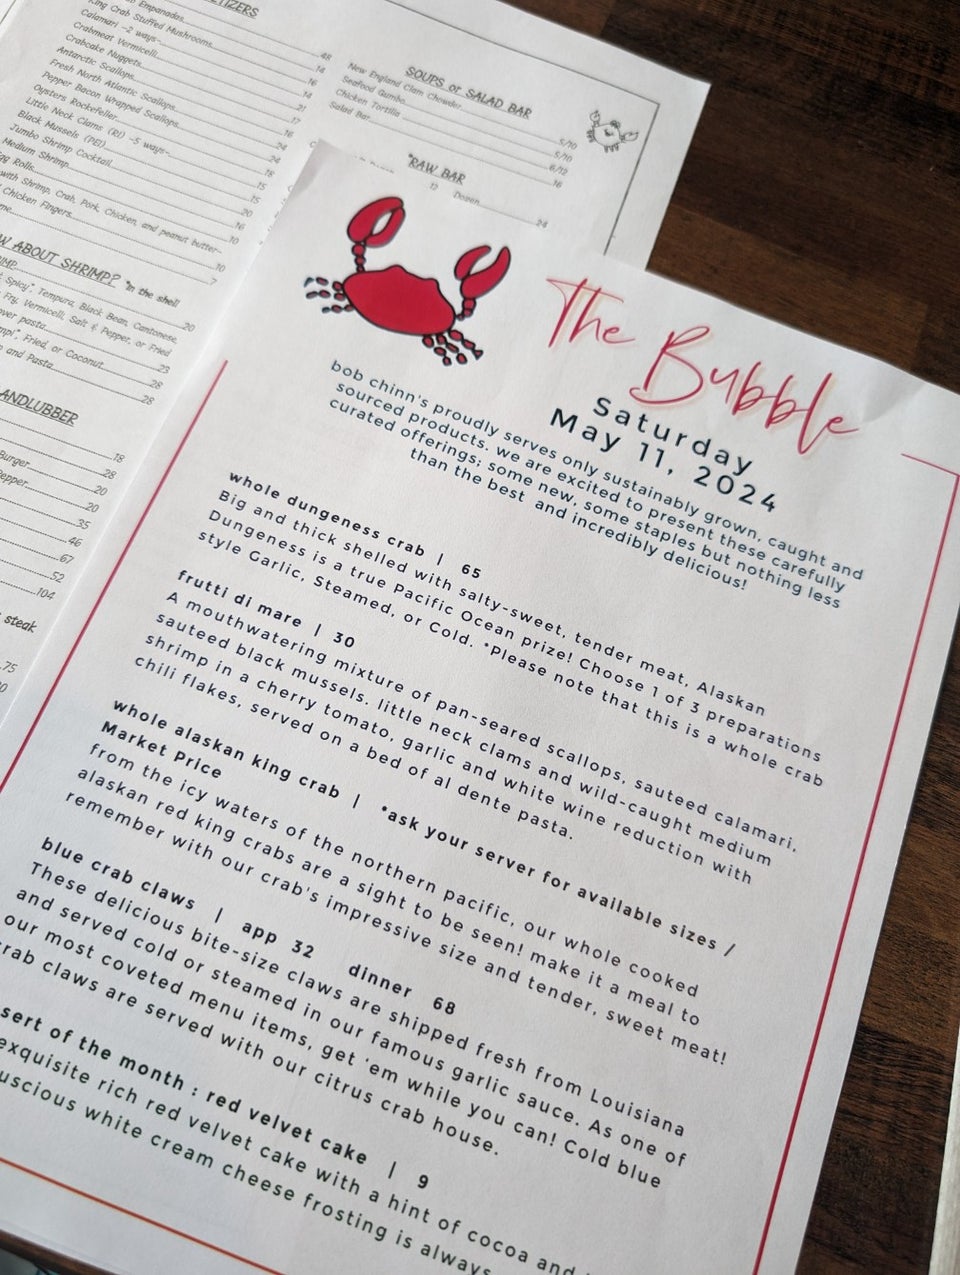 King Crab Stuffed Mushrooms
Calamari -2 ways-
Crabmeat Vermicelli
Crabcake Nuggets
Antarctic Scallops
Fresh North Atlantic Scallops
Pepper Bacon Wrapped Scallops
Oysters Rockefeller
Little Neck Clams (RI) -5 ways-
Black Mussels (PEI)
Jumbo Shrimp Cocktail
Medium Shrimp
Rolls
with Shrimp, Crab, Pork, Chicken, and peanut butter-
Chicken Fingers
ABOUT SHRIMP? *in the shell
Spicy*, Tempura, Black Bean, Cantonese,
Fry, Vermicelli, Salt & Pepper, or Fried
over pasta
Fried, or Coconut
and Pasta
ANDLUBBER
18
Burger 28
epper 20
20
35
46
67
52
104
steak
.75
SOUPS or SALAD BAR
New England Clam Chowder 5/10
Seafood Gumbo 5/10
Chicken Tortilla 6/12
Salad Bar 16
*RAW BAR
Dozen
24
The Bubble
Saturday
May 11, 2024
bob chinn's proudly serves only sustainably grown, caught and
sourced products. we are excited to present these carefully
curated offerings; some new, some staples but nothing less
than the best and incredibly delicious!
whole dungeness crab | 65
Big and thick shelled with salty-sweet, tender meat, Alaskan
Dungeness is a true Pacific Ocean prize! Choose 1 of 3 preparations
style Garlic, Steamed, or Cold. *Please note that this is a whole crab
frutti di mare | 30
A mouthwatering mixture of pan-seared scallops, sauteed calamari,
sauteed black mussels. little neck clams and wild-caught medium
shrimp in a cherry tomato, garlic and white wine reduction with
chili flakes, served on a bed of al dente pasta.
whole alaskan king crab | *ask your server for available sizes /
Market Price
from the icy waters of the northern pacific, our whole cooked
alaskan red king crabs are a sight to be seen! make it a meal to
remember with our crab's impressive size and tender, sweet meat!
blue crab claws | app 32 dinner 68
These delicious bite-size claws are shipped fresh from Louisiana
and served cold or steamed in our famous garlic sauce. As one of
our most coveted menu items, get 'em while you can! Cold blue
crab claws are served with our citrus crab house.
sert of the month : red velvet cake | 9
exquisite rich red velvet cake with a hint of cocoa and
uscious white cream cheese frosting is always